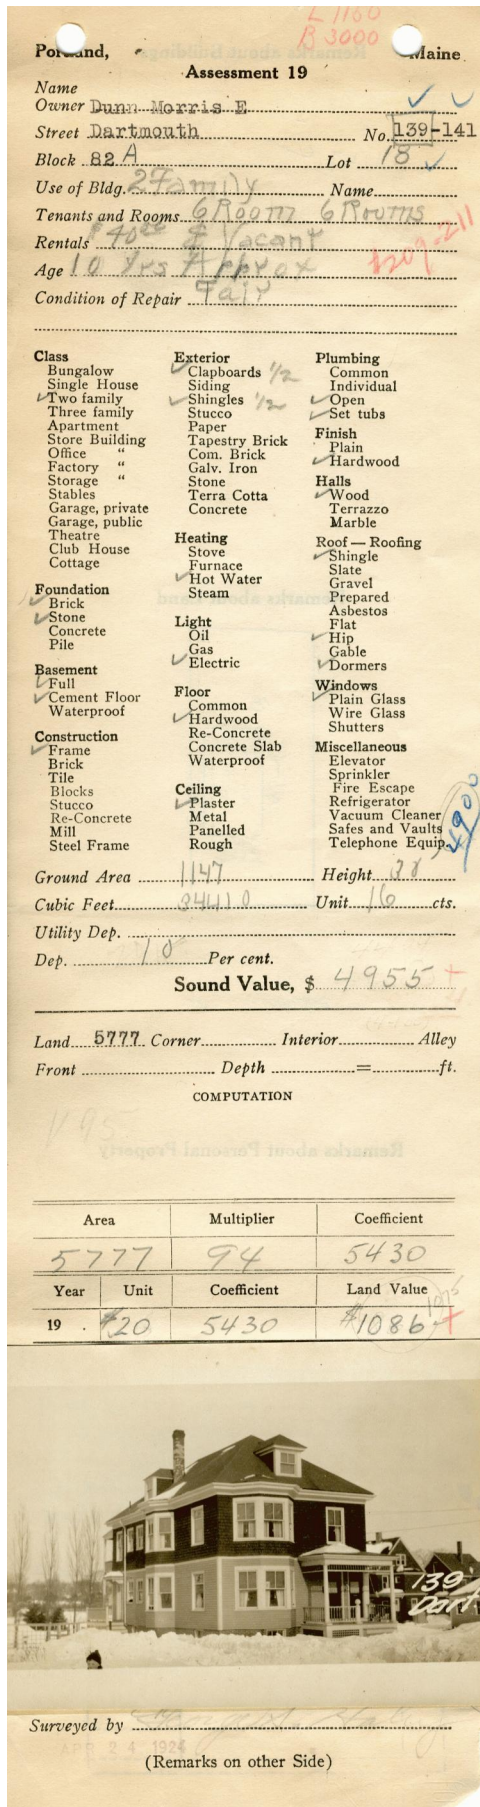 L 1160
B 3000
Portland, Maine
Assessment 19
Name
Owner Dunn Morris E
Street Dartmouth No. 139-141
Block 82 A Lot 18
Use of Bldg. 2 Family Name
Tenants and Rooms 6 Room 6 Rooms
Rentals $40.00 $ Vacant
$209.-211
Age 10 Yrs Approx
Condition of Repair Fair
Class
Bungalow
Single House
Two family
Three family
Apartment
Store Building
Office "
Factory "
Storage "
Stables
Garage, private
Garage, public
Theatre
Club House
Cottage
Foundation
Brick
Stone
Concrete
Pile
Basement
Full
Cement Floor
Waterproof
Construction
Frame
Brick
Tile
Blocks
Stucco
Re-Concrete
Mill
Steel Frame
Exterior
Clapboards 1/2
Siding
Shingles 1/2
Stucco
Paper
Tapestry Brick
Com. Brick
Galv. Iron
Stone
Terra Cotta
Concrete
Heating
Stove
Furnace
Hot Water
Steam
Light
Oil
Gas
Electric
Floor
Common
Hardwood
Re-Concrete
Concrete Slab
Waterproof
Ceiling
Plaster
Metal
Panelled
Rough
Plumbing
Common
Individual
Open
Set tubs
Finish
Plain
Hardwood
Halls
Wood
Terrazzo
Marble
Roof — Roofing
Shingle
Slate
Gravel
Prepared
Asbestos
Flat
Hip
Gable
Dormers
Windows
Plain Glass
Wire Glass
Shutters
Miscellaneous
Elevator
Sprinkler
Fire Escape
Refrigerator
Vacuum Cleaner
Safes and Vaults
Telephone Equip.
4900
Ground Area 1147 Height
Cubic Feet 34410 Unit 16 cts.
Utility Dep.
Dep. 10 Per cent.
Sound Value, $ 4955 +
Land 5777 Corner Interior Alley
Front Depth = ft.
COMPUTATION
V 95
Area Multiplier Coefficient
5777 94 5430
Year Unit Coefficient Land Value
1075
19 . $20 5430 $1086 +
139
Dart
Surveyed by
APR 24 1924
(Remarks on other Side)